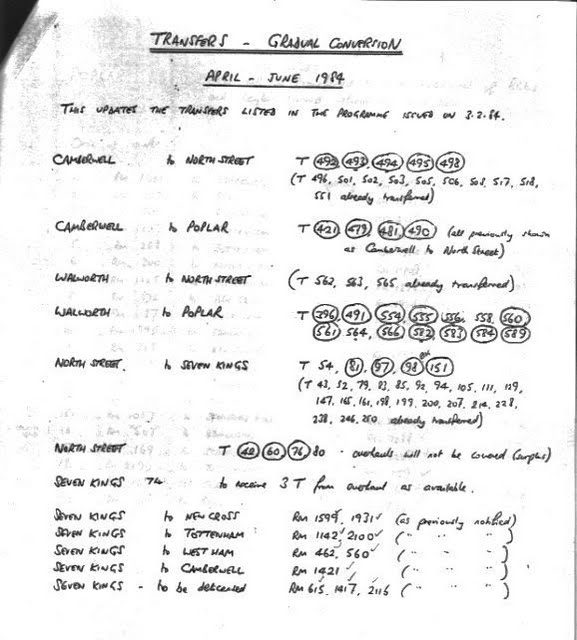 TRANSFERS - GRADUAL CONVERSION
APRIL - JUNE 1984
THIS UPDATES THE TRANSFERS LISTED IN THE PROGRAMME ISSUED ON 3.2.84.
CAMBERWELL to NORTH STREET T 492 493 494 495 498
(T 496, 501, 502, 503, 505, 506, 508, 517, 518,
551 already transferred)
CAMBERWELL to POPLAR T 421 479 481 490 (all previously shown
as Camberwell to North Street)
WALWORTH to NORTH STREET (T 562, 563, 565 already transferred)
WALWORTH to POPLAR T 396, 491 554 555 556, 558, 560
561 564, 566 582 583 584 589
NORTH STREET to SEVEN KINGS T 54, 81, 97, 98 151
(T 43, 52, 79, 83, 85, 92, 94, 105, 111, 129,
147, 165, 161, 198, 199, 200, 207, 214, 228,
238, 246, 250, already transferred)
NORTH STREET T 48 60, 76 80 - overhauls will not be covered (surplus)
SEVEN KINGS 74 to receive 3 T from overhaul as available.
SEVEN KINGS to NEW CROSS RM 1599, 1931 (as previously notified)
SEVEN KINGS to TOTTENHAM RM 1142, 2100 ( " " " )
SEVEN KINGS to WEST HAM RM 462, 560 ( " " " )
SEVEN KINGS to CAMBERWELL RM 1421 ( " " " )
SEVEN KINGS - to be delicensed RM 615, 1417, 2116 ( " " " )